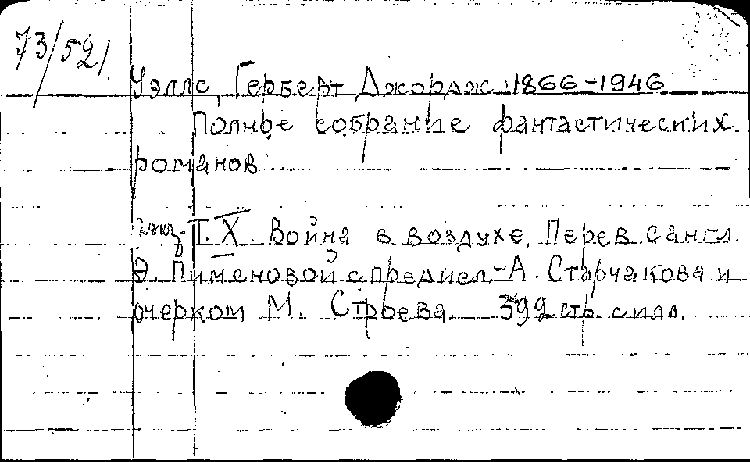 73/521
Уэллс, Герберт Джордж 1866-1946
Полное собрание фантастических
романов
Т. X. Война в воздухе. Перев. с англ.
Э. Пименовой с предисл. А. Старчакова и
очерком М. Строева. 392 стр. с илл.